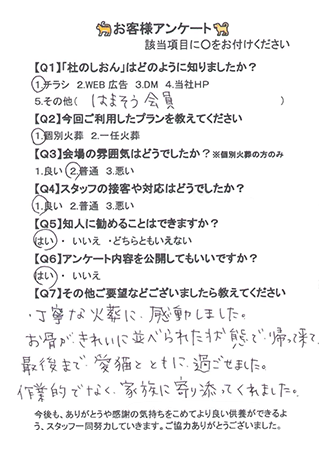 お客様アンケート
該当項目に○をお付けください
【Q1】「杜のしおん」はどのように知りましたか？
1.チラシ 2.WEB 広告 3.DM 4.当社HP
5.その他( はまそう会員 )
【Q2】今回ご利用したプランを教えてください
1.個別火葬 2.一任火葬
【Q3】会場の雰囲気はどうでしたか？※個別火葬の方のみ
1.良い 2.普通 3.悪い
【Q4】スタッフの接客や対応はどうでしたか？
1.良い 2.普通 3.悪い
【Q5】知人に勧めることはできますか？
はい ・ いいえ ・どちらともいえない
【Q6】アンケート内容を公開してもいいですか？
はい ・ いいえ
【Q7】その他ご要望などございましたら教えてください
・丁寧な火葬に、感動しました。
お骨が、きれいに並べられた状態で、帰って来て
最後まで、愛猫とともに、過ごせました。
作業的でなく、家族に寄り添ってくれました。
今後も、ありがとうや感謝の気持ちをこめてより良い供養ができるよ
う、スタッフ一同努力していきます。ご協力ありがとうございました。